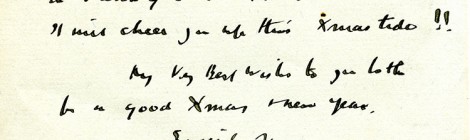 will cheer you up this Xmas tide !!
My Very Best Wishes to you both
for a good Xmas & new year.